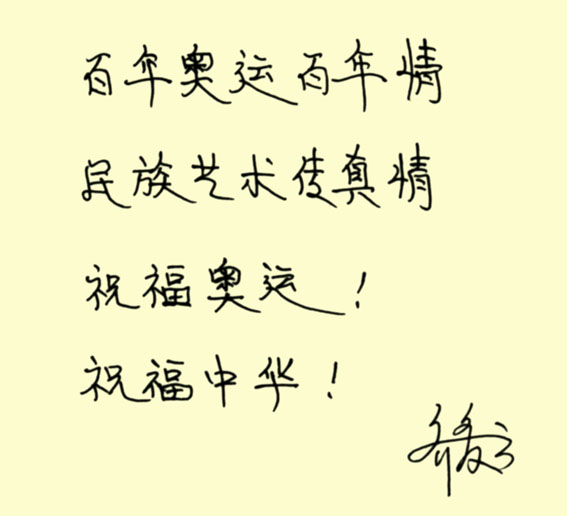 百年奥运百年情
民族艺术传真情
祝福奥运！
祝福中华！